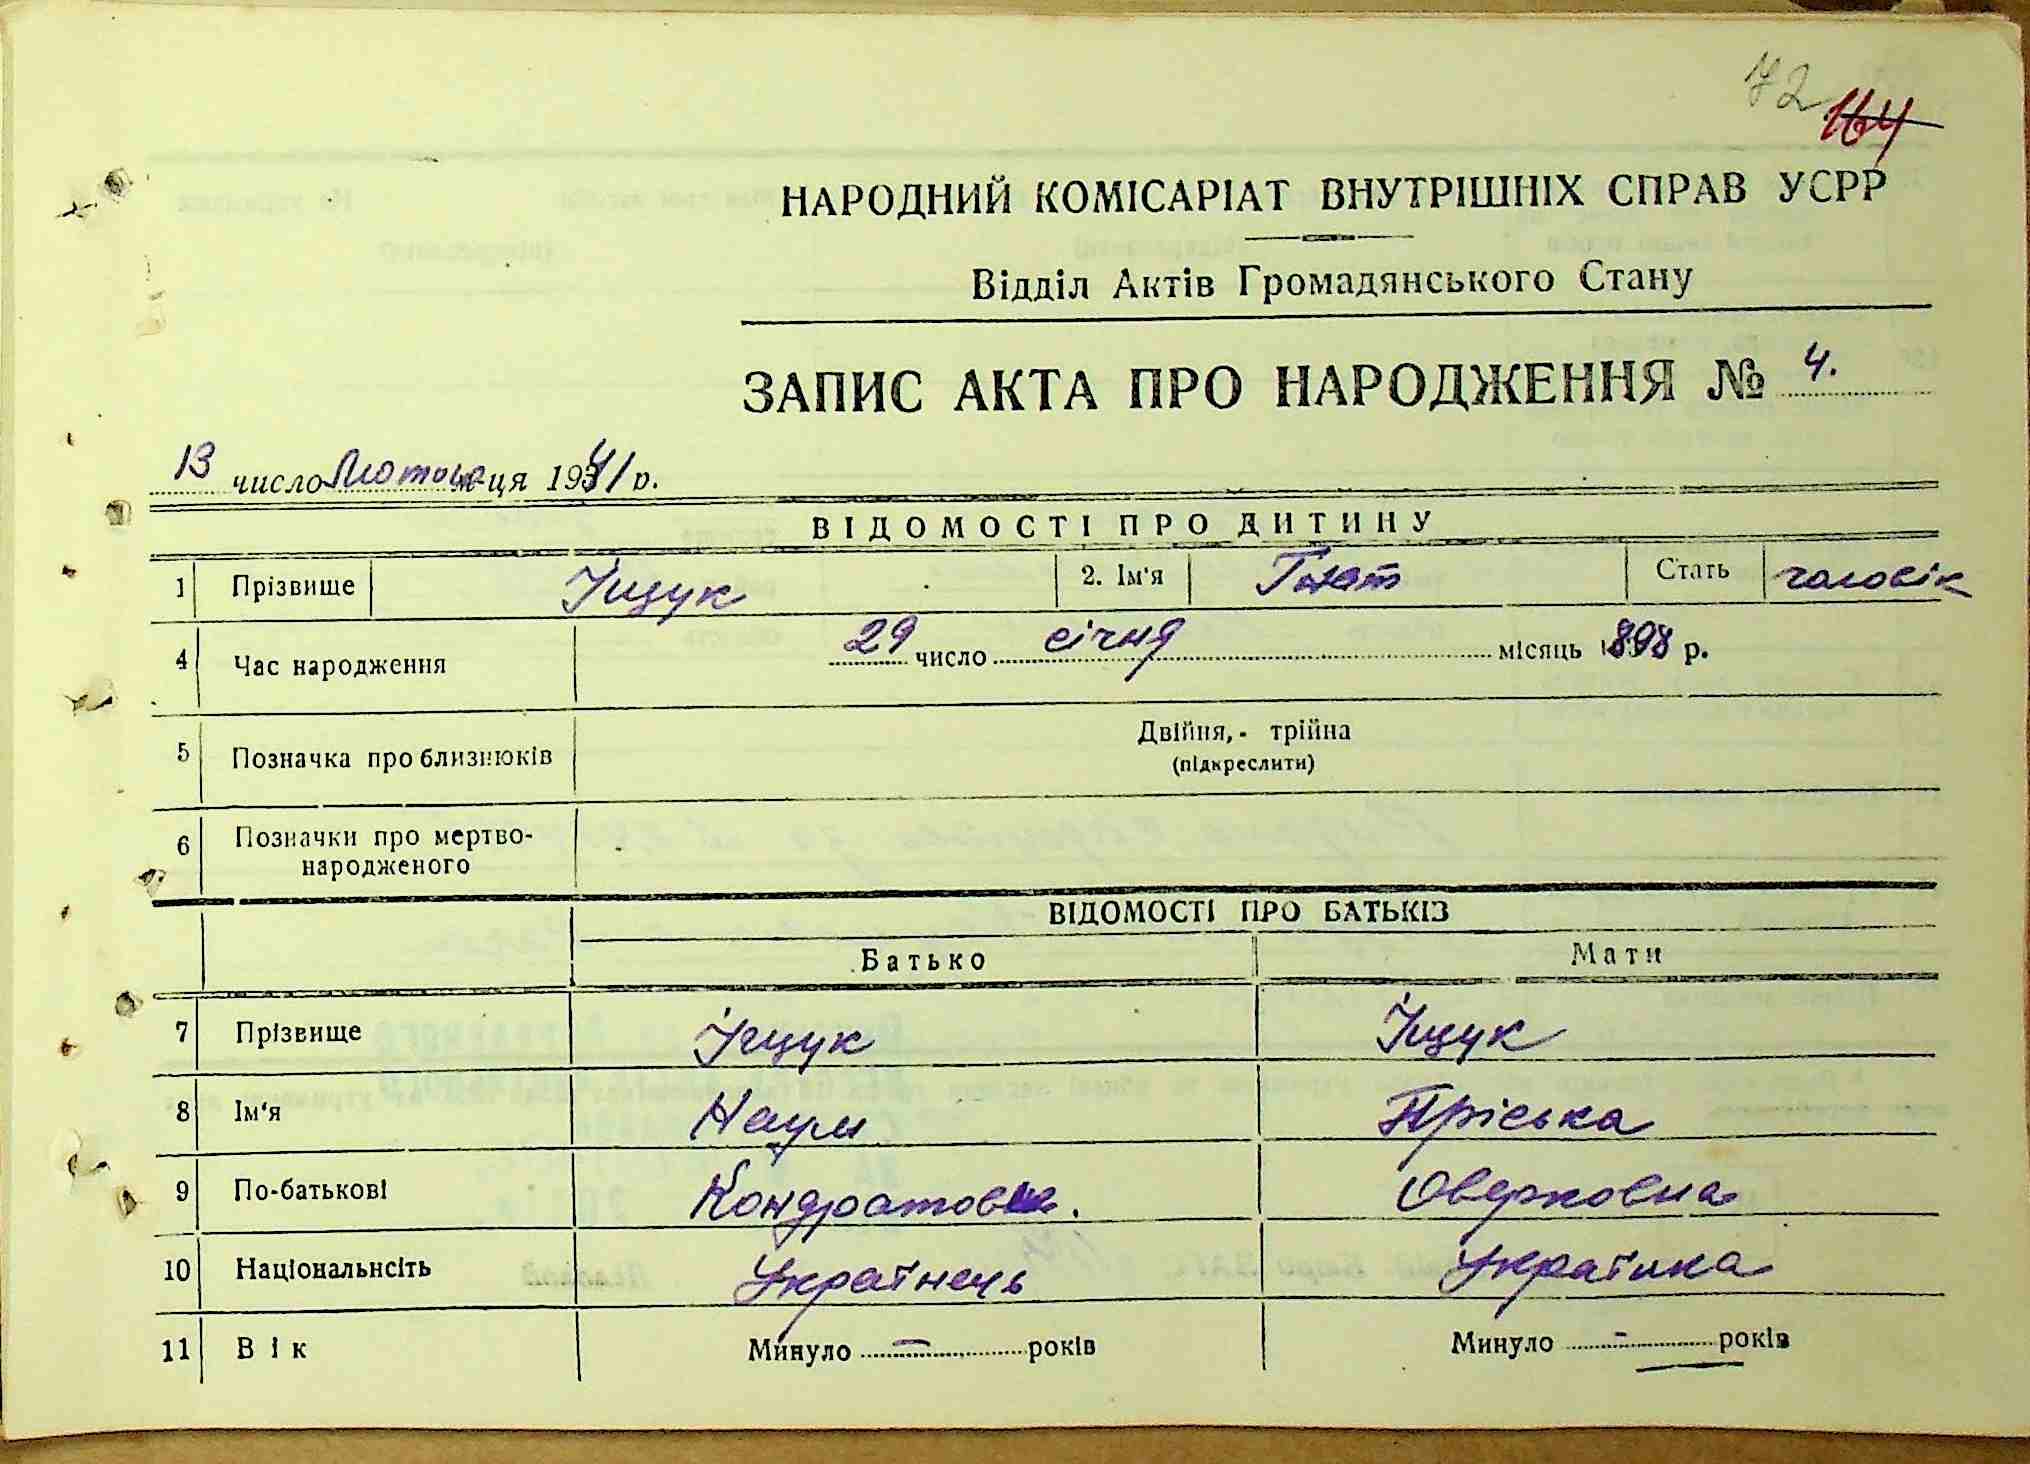 72 164
НАРОДНИЙ КОМІСАРІАТ ВНУТРІШНІХ СПРАВ УСРР
Відділ Актів Громадянського Стану
ЗАПИС АКТА ПРО НАРОДЖЕННЯ № 4.
13 число Лютого м-ця 1941 р.
ВІДОМОСТІ ПРО ДИТИНУ
1 Прізвище Іщук 2. Ім'я Гнат Стать чоловік
4 Час народження 29 число січня місяць 1898 р.
5 Позначка про близнюків Двійня, - трійна
(підкреслити)
6 Позначки про мертво-
народженого
ВІДОМОСТІ ПРО БАТЬКІВ
Батько Мати
7 Прізвище Іщук Іщук
8 Ім'я Наум Пріська
9 По-батькові Кондратов Оверковна
10 Національнсіть Українець Українка
11 Вік Минуло — років Минуло - років